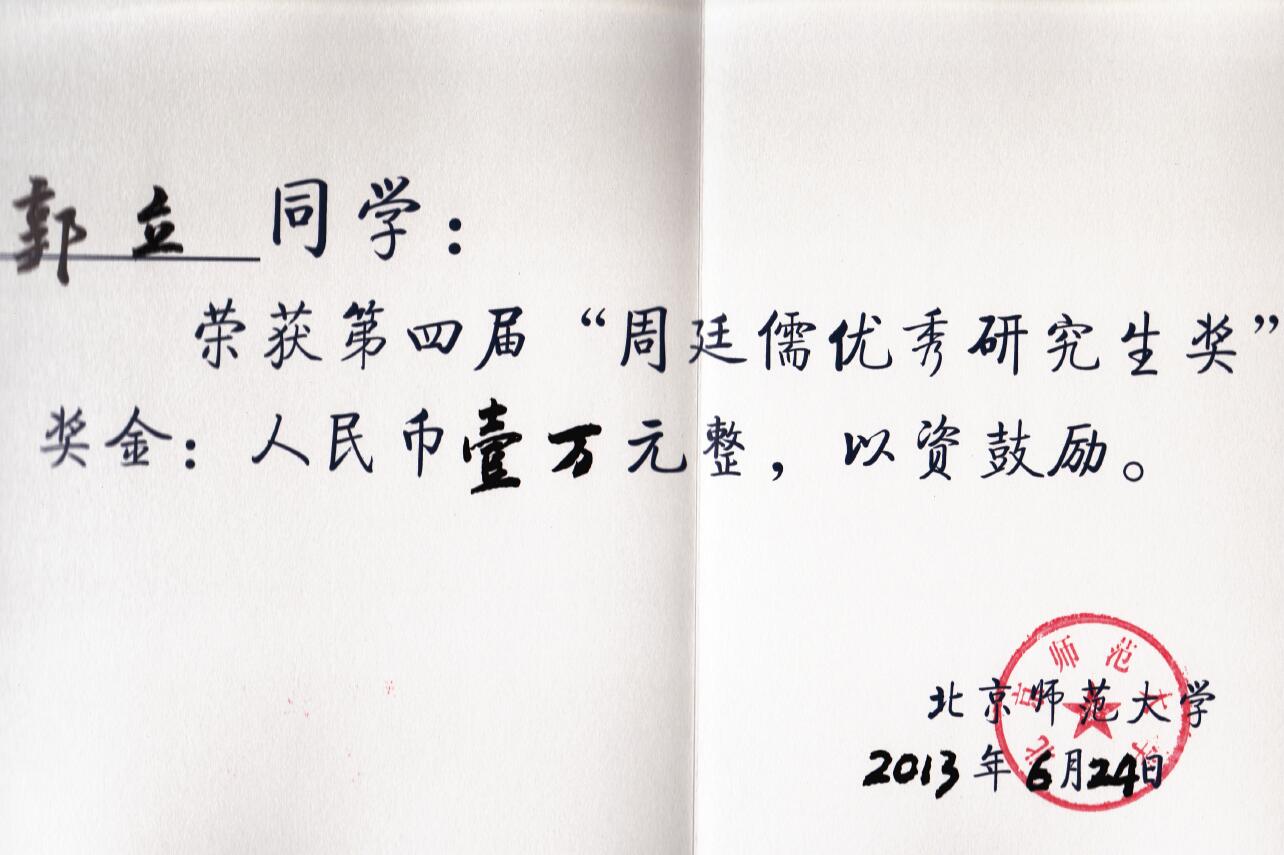 郭立同学：
荣获第四届“周廷儒优秀研究生奖”
奖金：人民币壹万元整，以资鼓励。
北京师范大学
2013年6月24日
北京师范大学